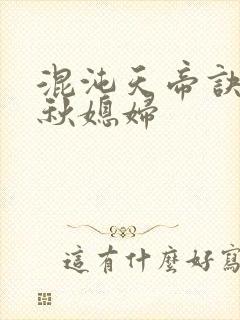 混沌天帝訣
秋媳婦
這有什麼好寫